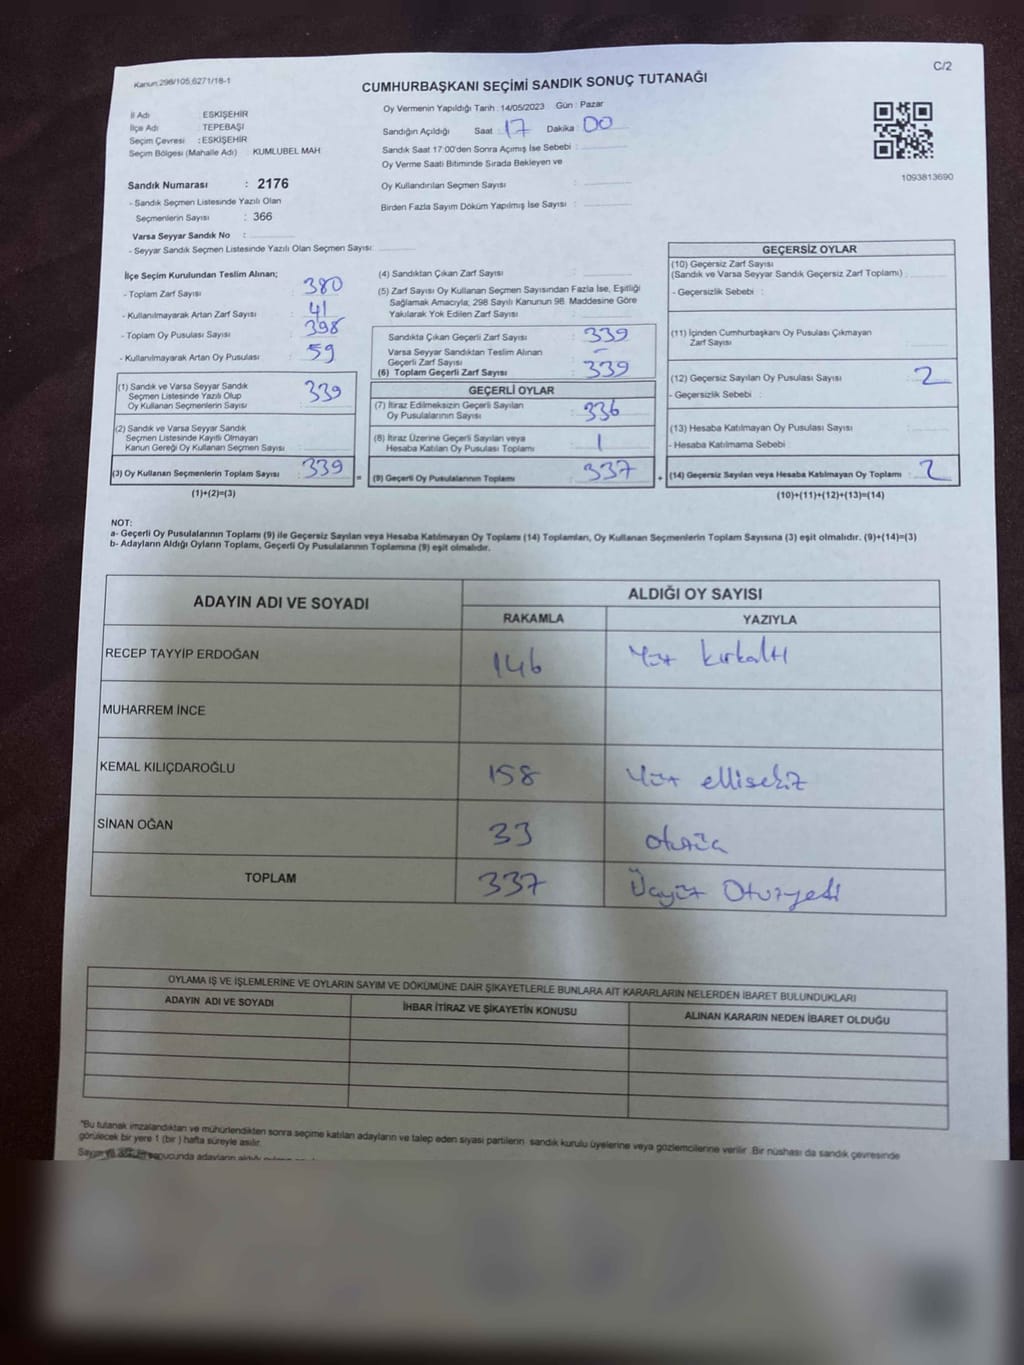 Kanun:298/105,6271/18-1
C/2
CUMHURBAŞKANI SEÇİMİ SANDIK SONUÇ TUTANAĞI
İl Adı : ESKİŞEHİR
İlçe Adı : TEPEBAŞI
Seçim Çevresi : ESKİŞEHİR
Seçim Bölgesi (Mahalle Adı) : KUMLUBEL MAH
Oy Vermenin Yapıldığı Tarih : 14/05/2023 Gün : Pazar
Sandığın Açıldığı Saat : 17 Dakika : 00
Sandık Saat 17:00'den Sonra Açımış İse Sebebi :
Oy Verme Saati Bitiminde Sırada Bekleyen ve
Oy Kullandırılan Seçmen Sayısı :
Birden Fazla Sayım Döküm Yapılmış İse Sayısı :
1093813690
Sandık Numarası : 2176
- Sandık Seçmen Listesinde Yazılı Olan
Seçmenlerin Sayısı : 366
Varsa Seyyar Sandık No :
- Seyyar Sandık Seçmen Listesinde Yazılı Olan Seçmen Sayısı:
İlçe Seçim Kurulundan Teslim Alınan;
- Toplam Zarf Sayısı : 380
- Kullanılmayarak Artan Zarf Sayısı : 41
- Toplam Oy Pusulası Sayısı : 398
- Kullanılmayarak Artan Oy Pusulası : 59
(1) Sandık ve Varsa Seyyar Sandık
Seçmen Listesinde Yazılı Olup
Oy Kullanan Seçmenlerin Sayısı : 339
(2) Sandık ve Varsa Seyyar Sandık
Seçmen Listesinde Kayıtlı Olmayan
Kanun Gereği Oy Kullanan Seçmen Sayısı :
(3) Oy Kullanan Seçmenlerin Toplam Sayısı : 339
(1)+(2)=(3)
=
(4) Sandıktan Çıkan Zarf Sayısı :
(5) Zarf Sayısı Oy Kullanan Seçmen Sayısından Fazla İse, Eşitliği
Sağlamak Amacıyla; 298 Sayılı Kanunun 98. Maddesine Göre
Yakılarak Yok Edilen Zarf Sayısı :
Sandıkta Çıkan Geçerli Zarf Sayısı : 339
Varsa Seyyar Sandıktan Teslim Alınan
Geçerli Zarf Sayısı : –
(6) Toplam Geçerli Zarf Sayısı : 339
GEÇERLİ OYLAR
(7) İtiraz Edilmeksizin Geçerli Sayılan
Oy Pusulalarının Sayısı : 336
(8) İtiraz Üzerine Geçerli Sayılan veya
Hesaba Katılan Oy Pusulası Toplamı : 1
(9) Geçerli Oy Pusulalarının Toplamı : 337
+
GEÇERSİZ OYLAR
(10) Geçersiz Zarf Sayısı
(Sandık ve Varsa Seyyar Sandık Geçersiz Zarf Toplamı) :
- Geçersizlik Sebebi :
(11) İçinden Cumhurbaşkanı Oy Pusulası Çıkmayan
Zarf Sayısı :
(12) Geçersiz Sayılan Oy Pusulası Sayısı : 2
- Geçersizlik Sebebi :
(13) Hesaba Katılmayan Oy Pusulası Sayısı :
- Hesaba Katılmama Sebebi :
(14) Geçersiz Sayılan veya Hesaba Katılmayan Oy Toplamı : 2
(10)+(11)+(12)+(13)=(14)
NOT:
a- Geçerli Oy Pusulalarının Toplamı (9) ile Geçersiz Sayılan veya Hesaba Katılmayan Oy Toplamı (14) Toplamları, Oy Kullanan Seçmenlerin Toplam Sayısına (3) eşit olmalıdır. (9)+(14)=(3)
b- Adayların Aldığı Oyların Toplamı, Geçerli Oy Pusulalarının Toplamına (9) eşit olmalıdır.
ADAYIN ADI VE SOYADI
ALDIĞI OY SAYISI
RAKAMLA YAZIYLA
RECEP TAYYİP ERDOĞAN 146 Yüz kırkaltı
MUHARREM İNCE
KEMAL KILIÇDAROĞLU 158 Yüz ellisekiz
SİNAN OĞAN 33 otuzüç
TOPLAM 337 Üçyüz Otuzyedi
OYLAMA İŞ VE İŞLEMLERİNE VE OYLARIN SAYIM VE DÖKÜMÜNE DAİR ŞİKAYETLERLE BUNLARA AİT KARARLARIN NELERDEN İBARET BULUNDUKLARI
ADAYIN ADI VE SOYADI İHBAR İTİRAZ VE ŞİKAYETİN KONUSU ALINAN KARARIN NEDEN İBARET OLDUĞU
"Bu tutanak imzalandıktan ve mühürlendikten sonra seçime katılan adayların ve talep eden siyasi partilerin sandık kurulu üyelerine veya gözlemcilerine verilir .Bir nüshası da sandık çevresinde
görülecek bir yere 1 (bir ) hafta süreyle asılır.